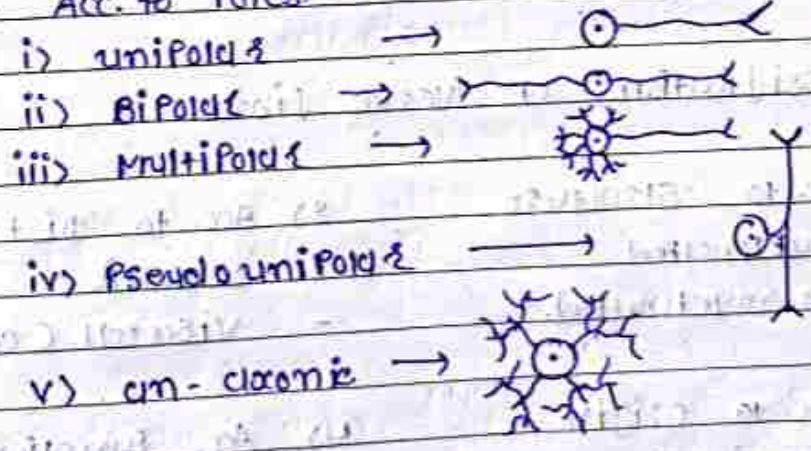 Acc. to
i) unipolar →
ii) Bipolar →
iii) Multipolar →
iv) Pseudounipolar →
v) an-axonic →